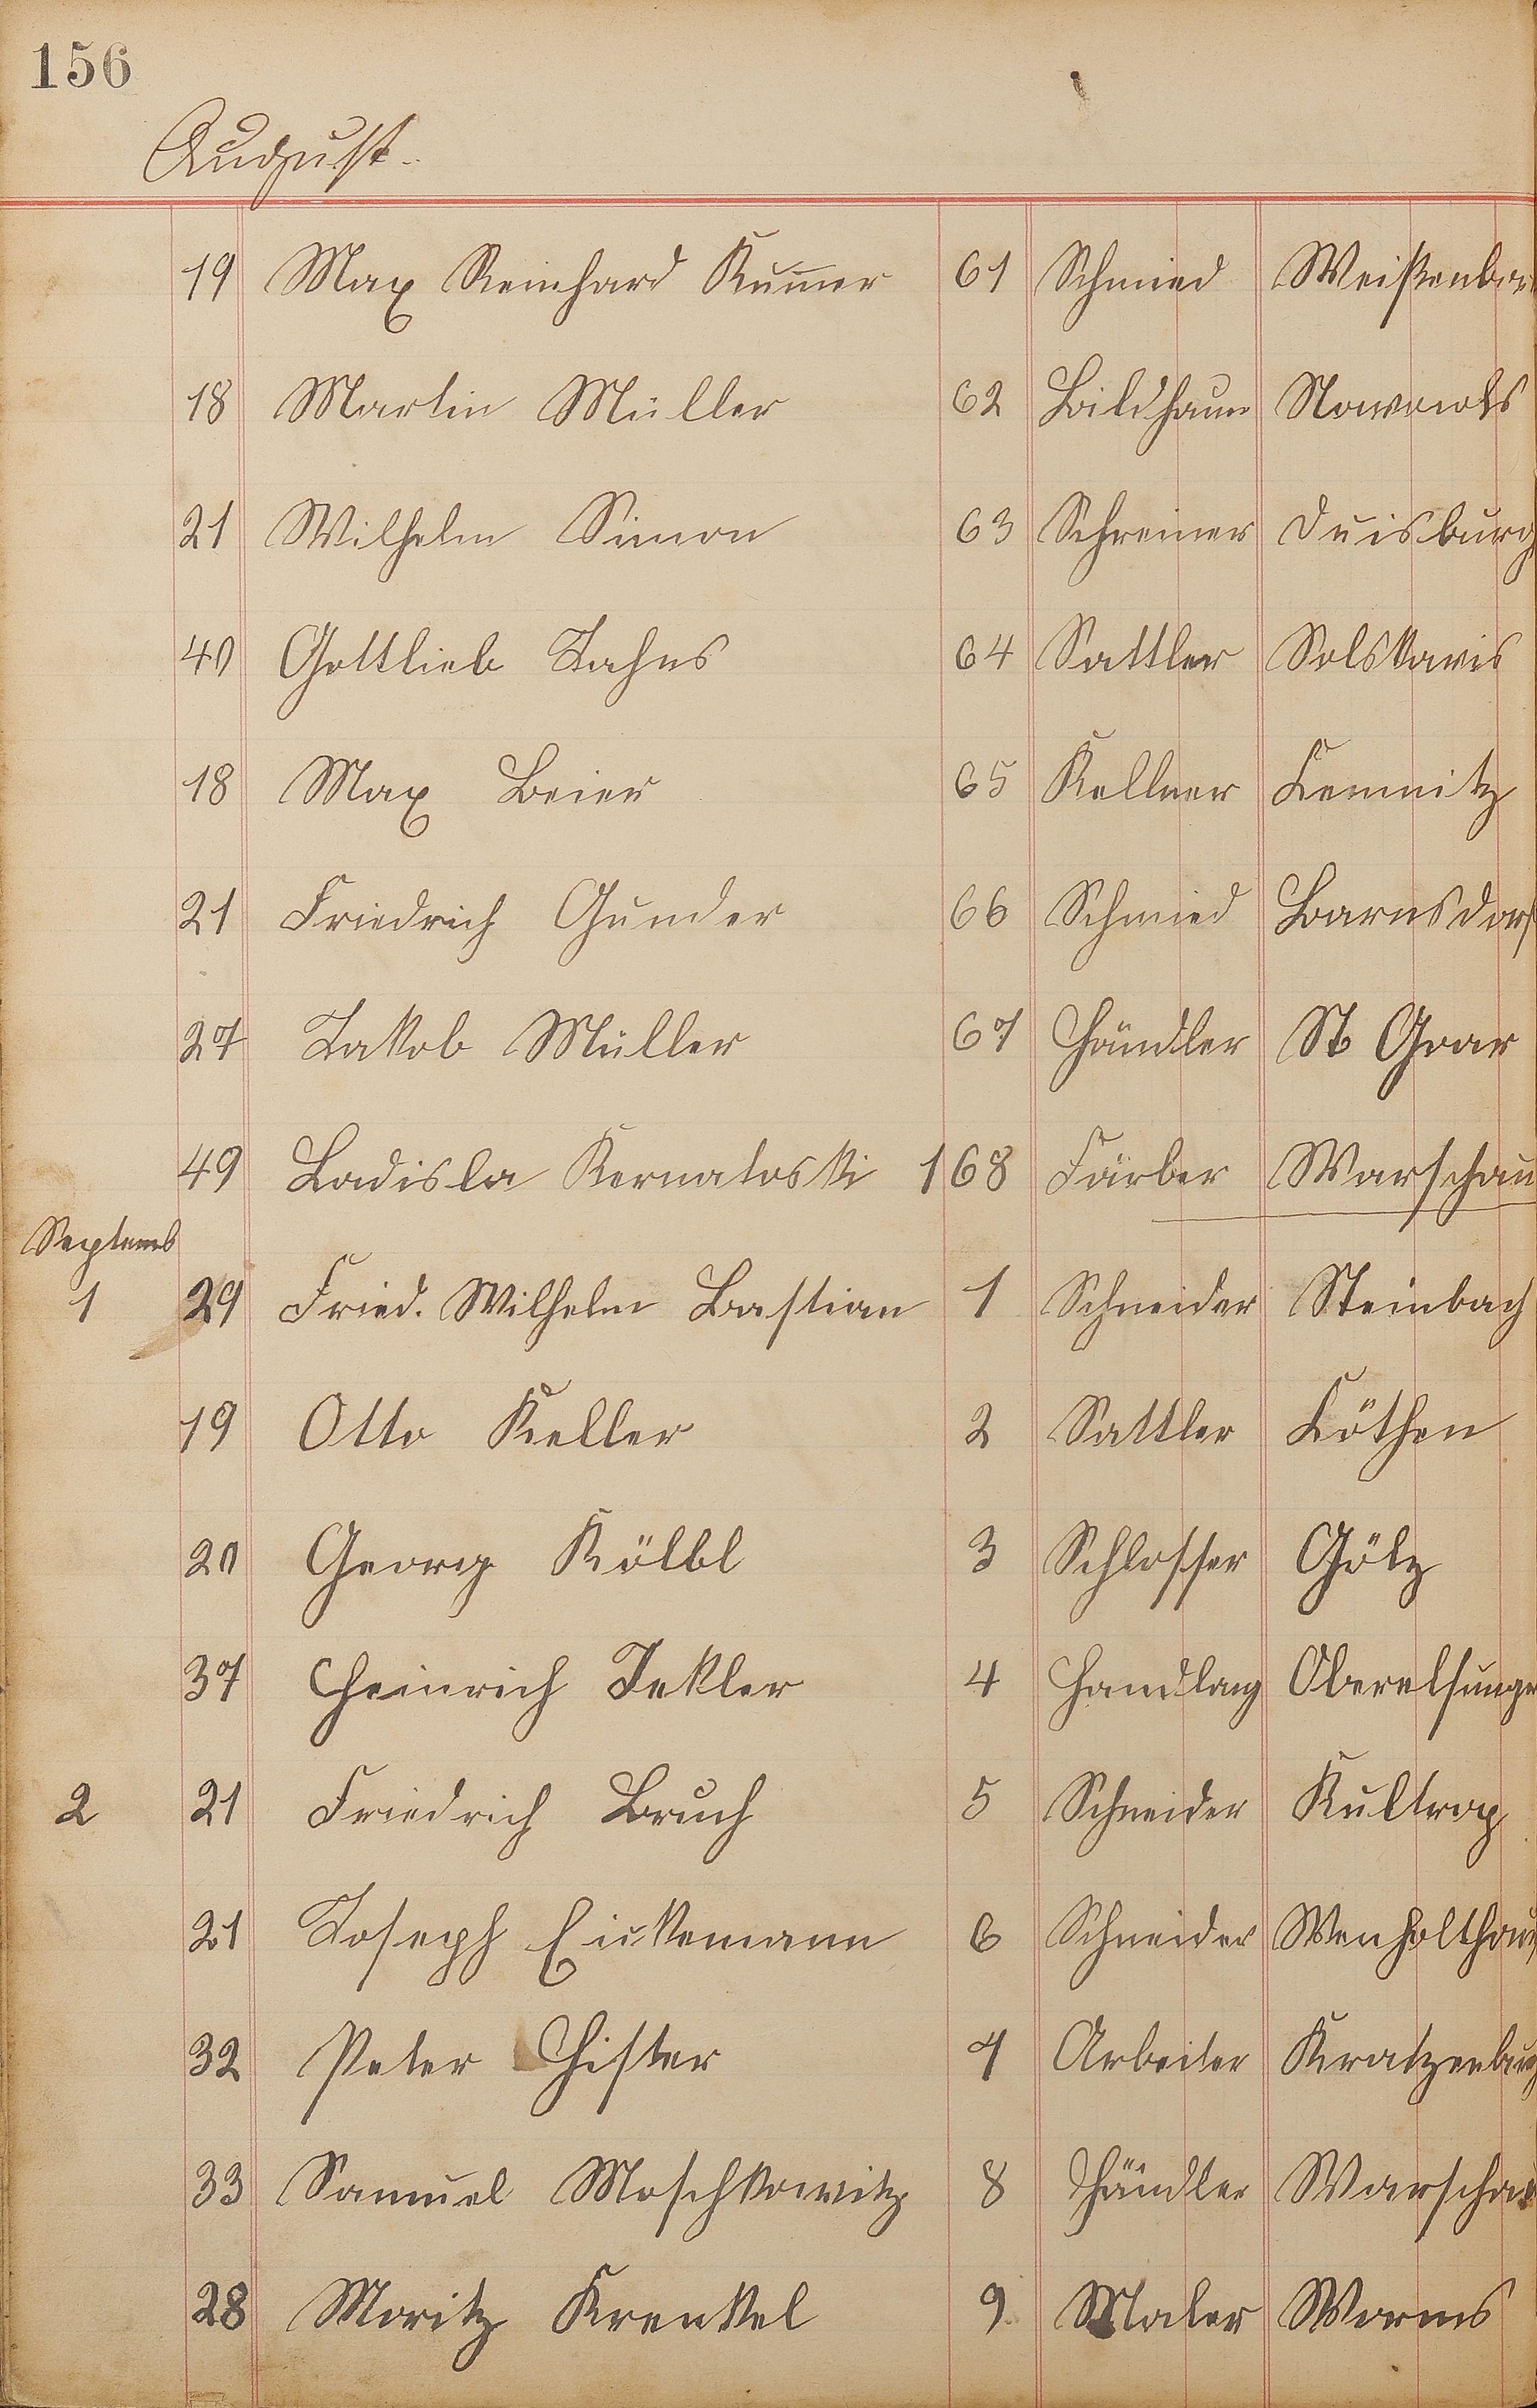 156
August.
19 Max Reinhard Kum̅er 61 Schmied Weißenbor
18 Martin Müller 62 Bildhauer Nowawes
21 Wilhelm Simon 63 Schreiner Duisburg
40 Gottlieb Jahns 64 Sattler
18 Max Beier 65 Kellner Kemnitz
21 Friedrich Gunder 66 Schmied Barnsdorf
27 Jakob Müller 67 Händler St Goar
49 Ladisla Kernatoski 168 Färber Warschau
Septemb
1 29 Fried. Wilhelm Bastian 1 Schneider Steinbach
19 Otto Keller 2 Sattler Köthen
20 Georg Kölbl 3 Schlosser Gölz
37 Heinrich Jekler 4 Handlang Oberelsunge
2 21 Friedrich Bruch 5 Schneider Kultrop
21 Joseph 6 Schneider Wenholthau
32 Peter Hister 7 Arbeiter Kratzenburg
33 Samuel Moschkowitz 8 Händler Warschau
28 Moritz Krenkel 9 Maler Worms